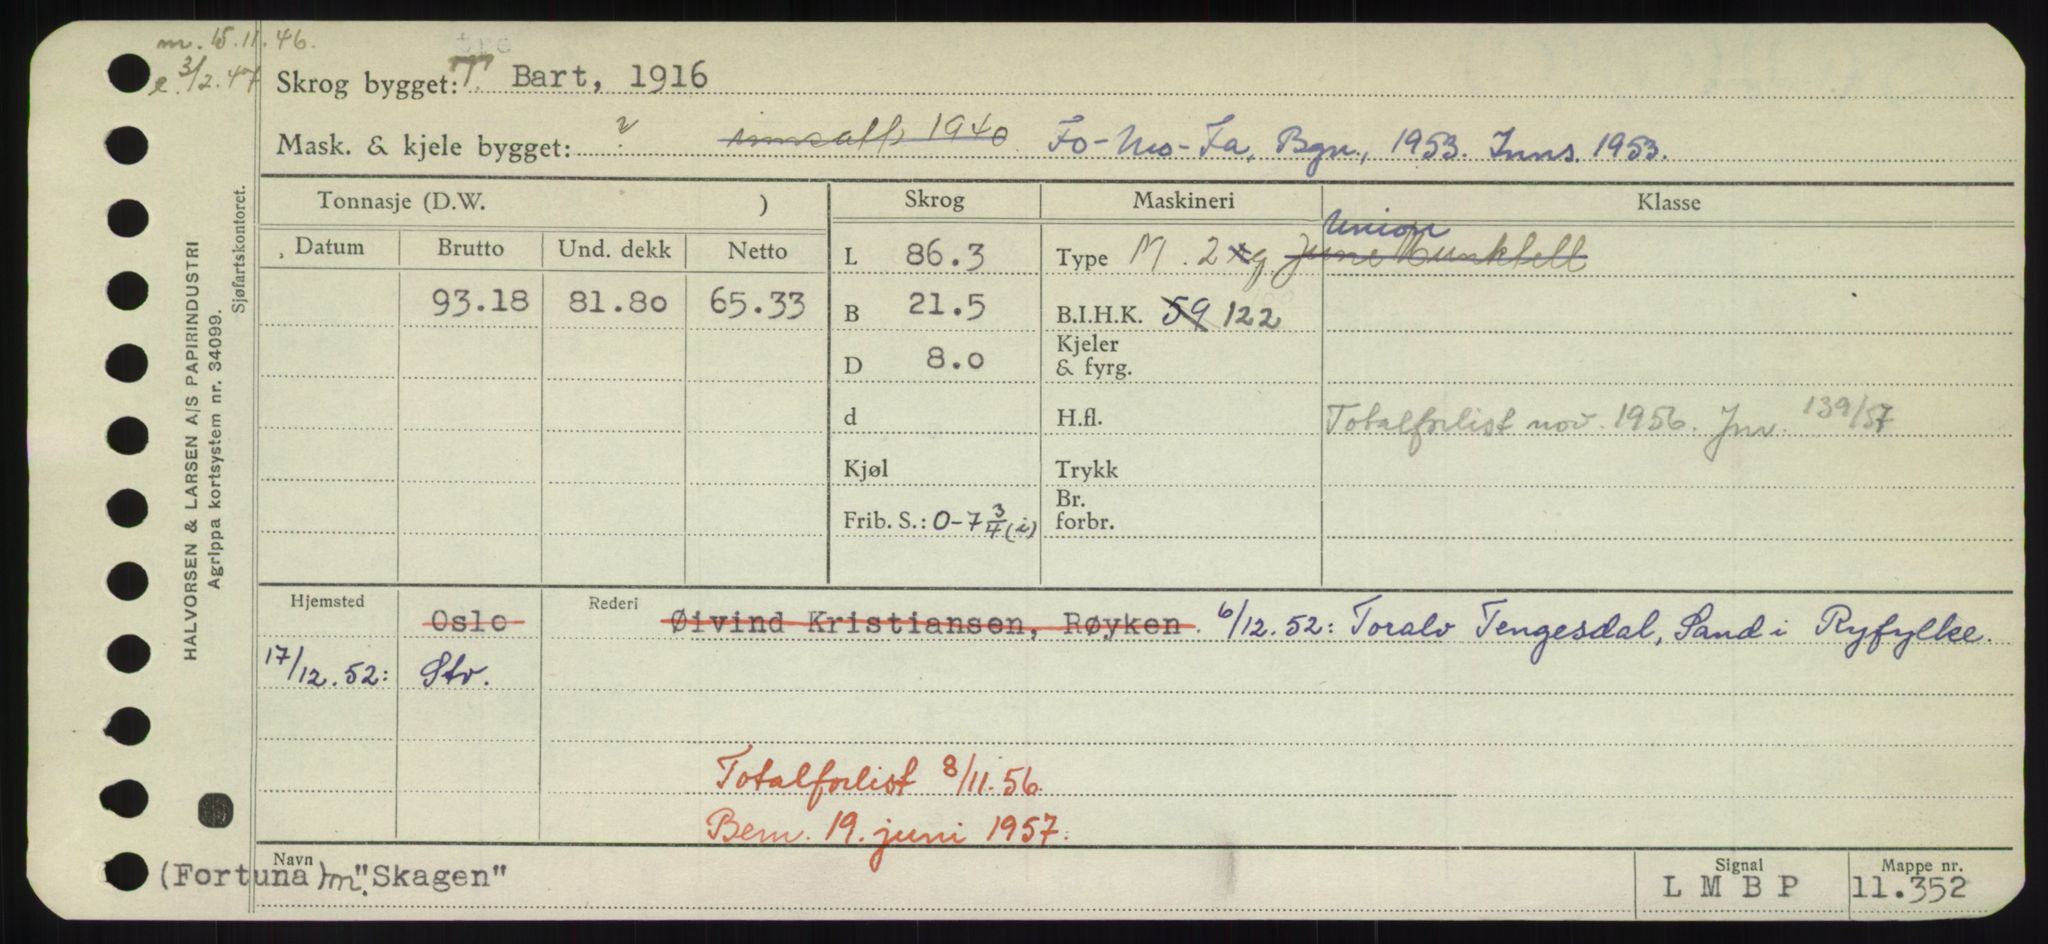 m. 15.11.46.
e. 3/2.47
tre
Skrog bygget: T. Bart, 1916
Mask. & kjele bygget: ? innsatt 1940 Fo-Mo-Fa, Bgn., 1953. Inns. 1953.
Tonnasje (D.W. ) Skrog Maskineri Klasse
Datum Brutto Und. dekk Netto
L 86.3 Type M. 2 xg. June Munktell Union
93.18 81.80 65.33
B 21.5 B.I.H.K. 59 122
D 8.0 Kjeler & fyrg.
d H.fl. Totalforlist nov. 1956. Jnr. 139/57
Kjøl Trykk
Frib. S.: 0-7 3/4 (i) Br. forbr.
Hjemsted Oslo Rederi Øivind Kristiansen, Røyken. 6/12.52: Toralv Tengesdal, Sand i Ryfylke.
17/12.52: Stv.
Totalforlist 8/11.56.
Bem. 19. juni 1957.
Navn (Fortuna) m. "Skagen" Signal L M B P Mappe nr. 11.352
HALVORSEN & LARSEN A/S PAPIRINDUSTRI
Agrippa kortsystem nr. 34099.
Sjøfartskontoret.